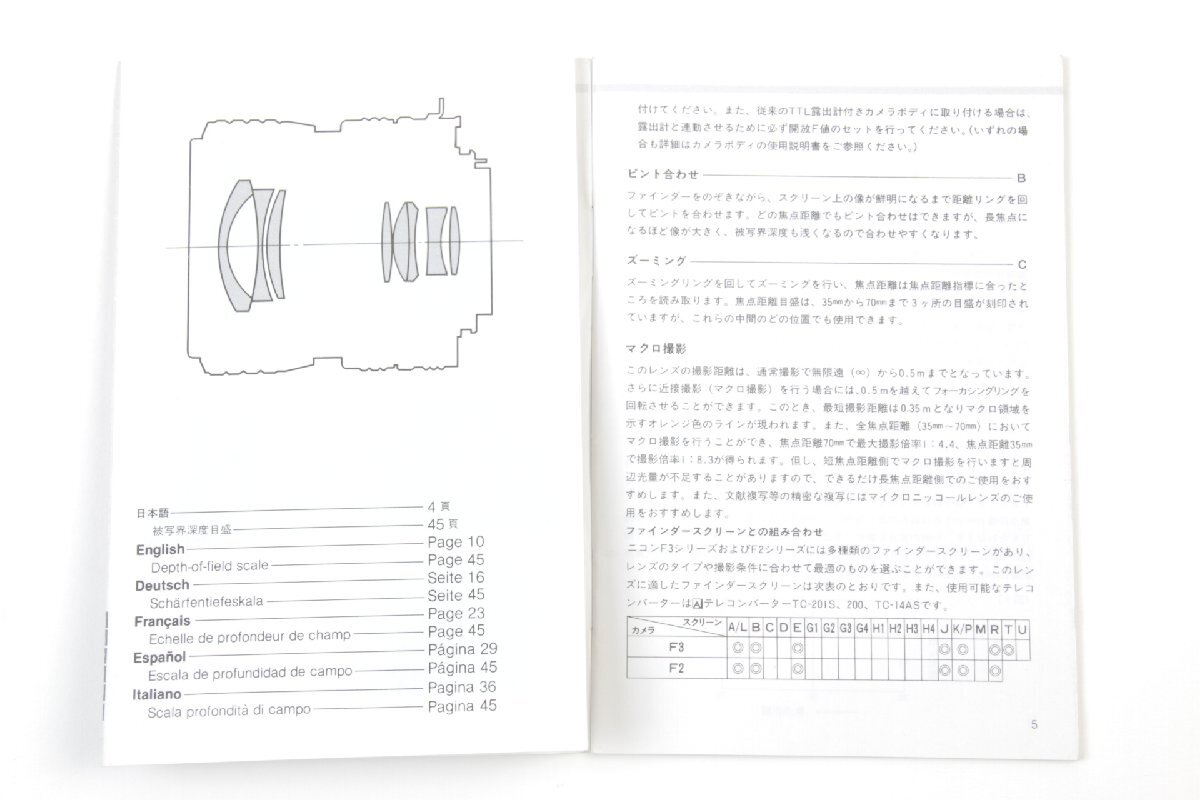 日本語 4 頁
被写界深度目盛 45 頁
English Page 10
Depth-of-field scale Page 45
Deutsch Seite 16
Schärfentiefeskala Seite 45
Français Page 23
Echelle de profondeur de champ Page 45
Español Página 29
Escala de profundidad de campo Página 45
Italiano Pagina 36
Scala profondità di campo Pagina 45
付けてください。また、従来のTTL露出計付きカメラボディに取り付ける場合は、
露出計と連動させるために必ず開放F値のセットを行ってください。(いずれの場
合も詳細はカメラボディの使用説明書をご参照ください。)
ピント合わせ B
ファインダーをのぞきながら、スクリーン上の像が鮮明になるまで距離リングを回
してピントを合わせます。どの焦点距離でもピント合わせはできますが、長焦点に
なるほど像が大きく、被写界深度も浅くなるので合わせやすくなります。
ズーミング C
ズーミングリングを回してズーミングを行い、焦点距離は焦点距離指標に合ったと
ころを読み取ります。焦点距離目盛は、35mmから70mmまで3ヶ所の目盛が刻印され
ていますが、これらの中間のどの位置でも使用できます。
マクロ撮影
このレンズの撮影距離は、通常撮影で無限遠(∞)から0.5mまでとなっています。
さらに近接撮影(マクロ撮影)を行う場合には、0.5mを越えてフォーカシングリングを
回転させることができます。このとき、最短撮影距離は0.35mとなりマクロ領域を
示すオレンジ色のラインが現われます。また、全焦点距離(35mm～70mm)において
マクロ撮影を行うことができ、焦点距離70mmで最大撮影倍率1:4.4、焦点距離35mm
で撮影倍率1:8.3が得られます。但し、短焦点距離側でマクロ撮影を行いますと周
辺光量が不足することがありますので、できるだけ長焦点距離側でのご使用をおす
すめします。また、文献複写等の精密な複写にはマイクロニッコールレンズのご使
用をおすすめします。
ファインダースクリーンとの組み合わせ
ニコンF3シリーズおよびF2シリーズには多種類のファインダースクリーンがあり、
レンズのタイプや撮影条件に合わせて最適のものを選ぶことができます。このレン
ズに適したファインダースクリーンは次表のとおりです。また、使用可能なテレコ
ンバーターはAIテレコンバーターTC-201S、200、TC-14ASです。
カメラ スクリーン A/L B C D E G1 G2 G3 G4 H1 H2 H3 H4 J K/P M R T U
F3 ◎ ◎ ◎ ◎ ◎ ◎ ◎
F2 ◎ ◎ ◎ ◎ ◎ ◎
5